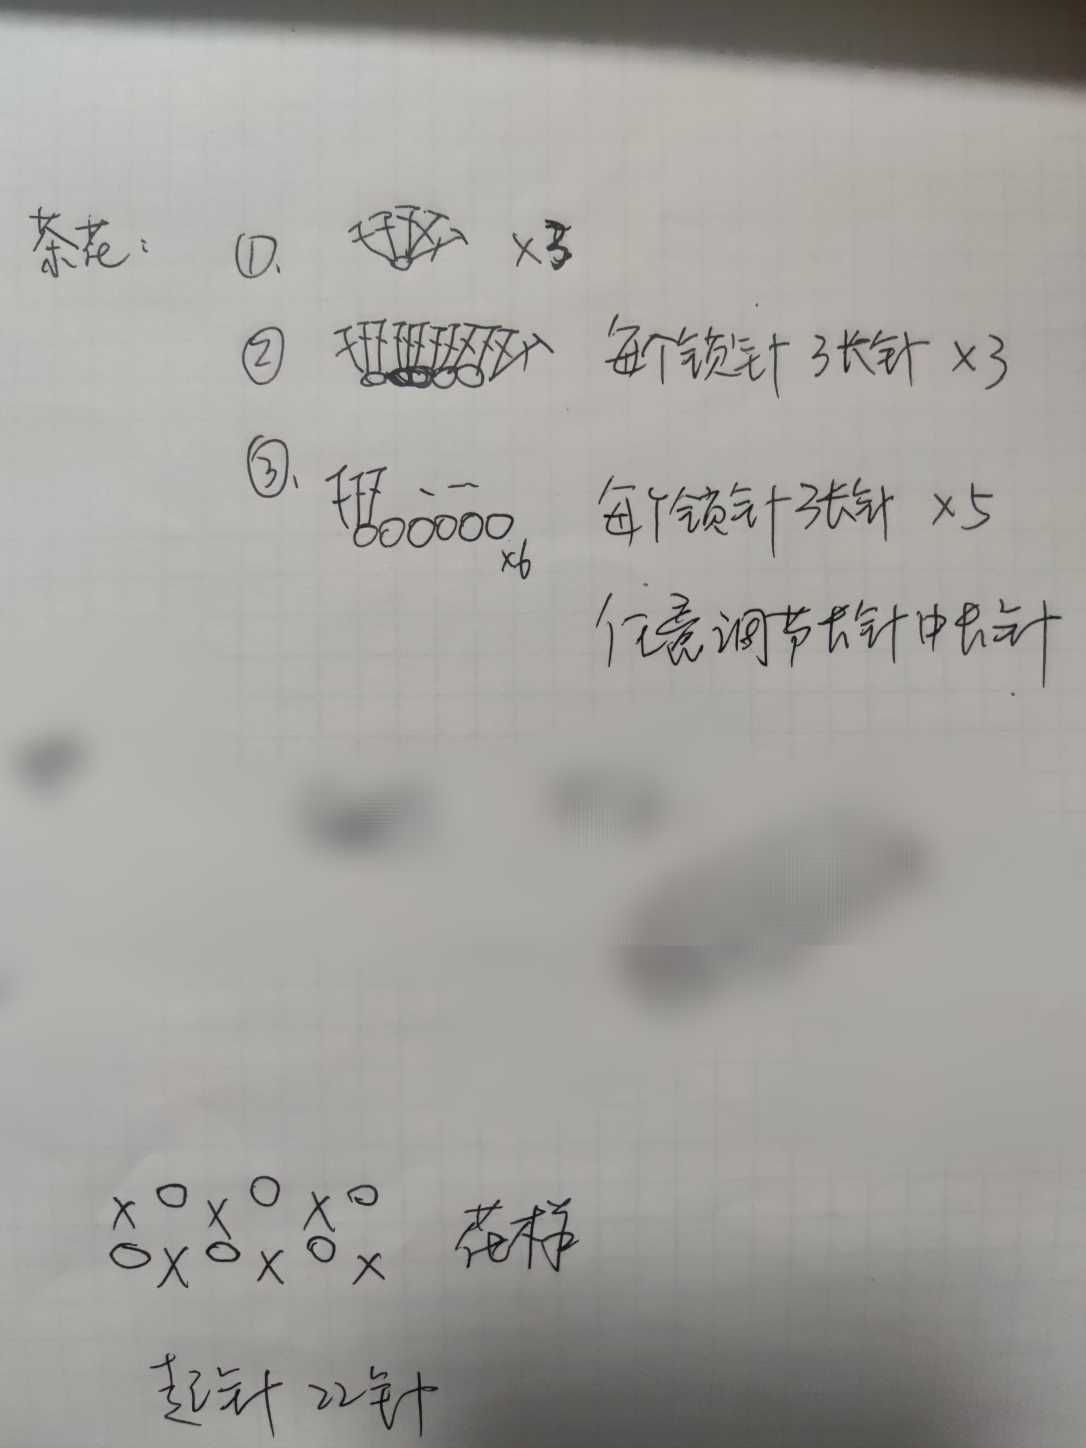 茶花: ①. ×3
② 每个锁针3长针 ×3
③、 ×6 每个锁针3长针 ×5
任意调节长针中长针
x o x o x o
o x o x o x 花样
起针22针